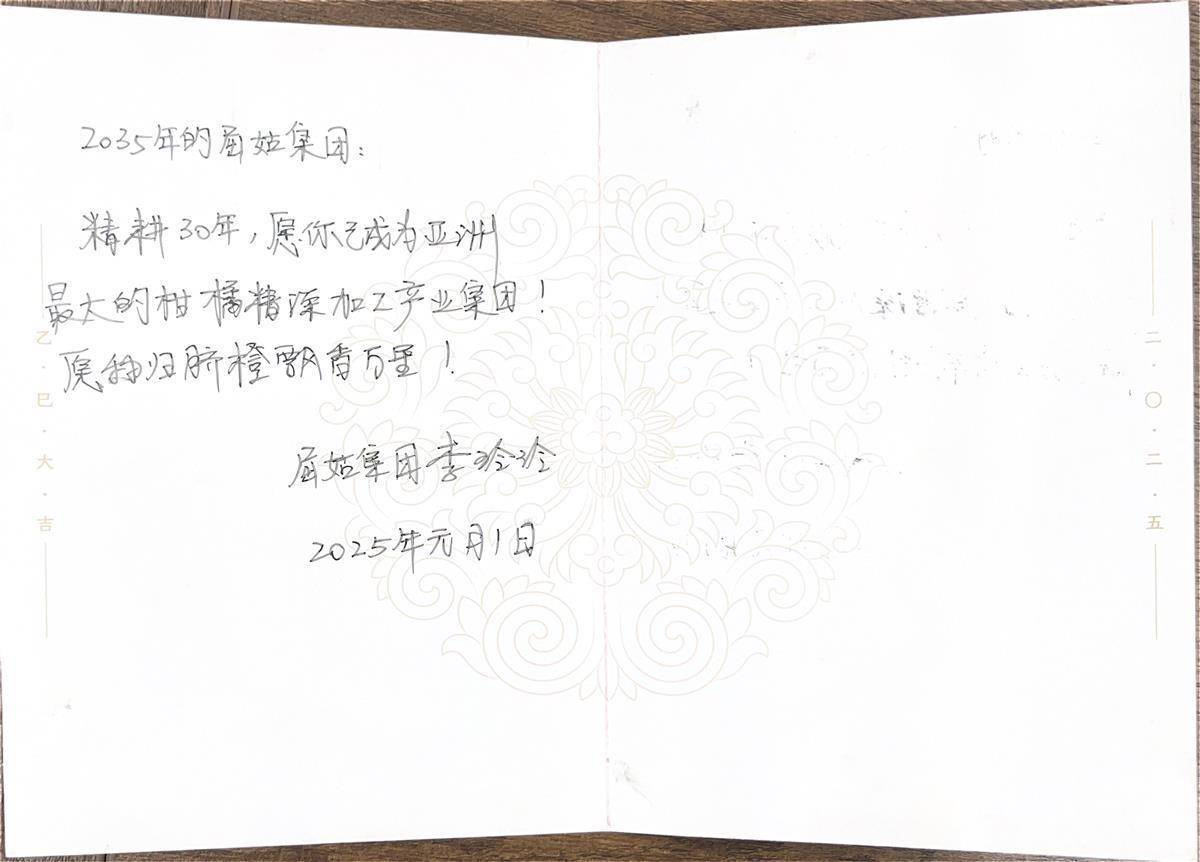 2035年的屈姑集团：
精耕30年，愿你已成为亚洲
最大的柑橘精深加工产业集团！
愿秭归脐橙飘香万里！
屈姑集团李玲玲
2025年元月1日
乙·巳·大·吉
二·〇·二·五